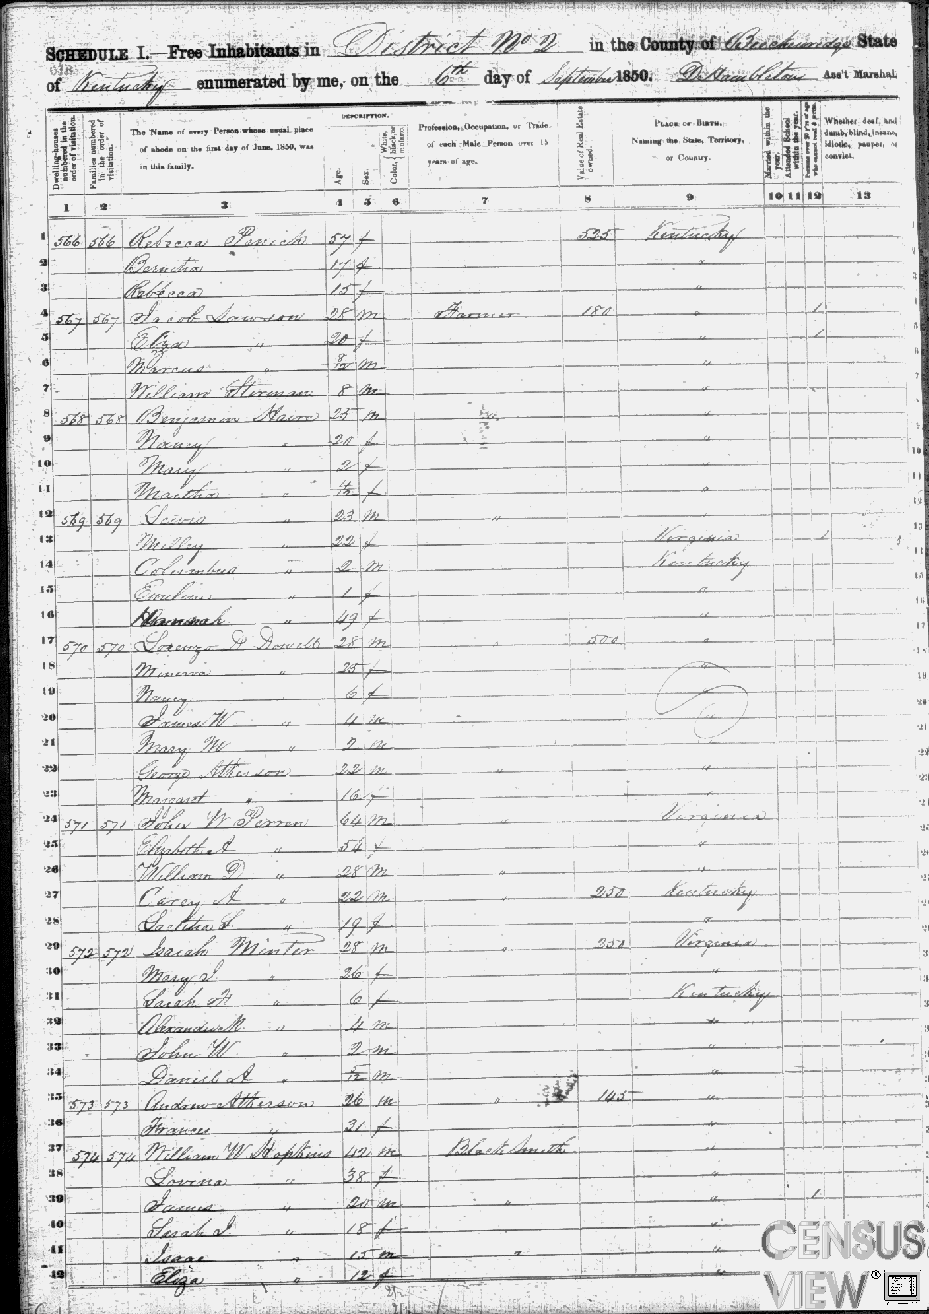 SCHEDULE I.—Free Inhabitants in District No 2 in the County of Breckenridge State
of Kentucky enumerated by me, on the 6th day of September 1850. Ass't Marshal.
Dwelling-houses numbered in the order of visitation.
Families numbered in the order of visitation.
The Name of every Person whose usual place of abode on the first day of June, 1850, was in this family.
DESCRIPTION.
Age.
Sex.
Color, White, black, or mulatto.
Profession, Occupation, or Trade of each Male Person over 15 years of age.
Value of Real Estate owned.
PLACE OF BIRTH. Naming the State, Territory, or Country.
Married within the year.
Attended School within the year.
Persons over 20 y'rs of age who cannot read & write.
Whether deaf, and dumb, blind, insane, idiotic, pauper, or convict.
1 2 3 4 5 6 7 8 9 10 11 12 13
1 566 566 Rebecca Penick 57 f 525 Kentucky
2 17 f "
3 Rebecca 15 f "
4 567 567 Jacob Lawson 28 m Farmer 180 " 1
5 Eliza " 20 f " 1
6 Marcus " m "
7 William 8 m "
8 568 568 Benjamin 25 m "
9 Nancy " 20 f "
10 Mary " 2 f "
11 Martha " f "
12 569 569 Lewis " 23 m " "
13 Milley " 22 f Virginia 1
14 Columbus " 2 m Kentucky
15 Emiline " 1 f "
16 Hannah " 49 f "
17 570 570 Lorenzo D Dowell 28 m " 500 "
18 Minerva " 25 f "
19 Nancy " 6 f
20 James W " 4 m "
21 Mary M " 2 m "
22 George Atherson 22 m " "
23 Margaret " 16 f "
24 571 571 John W Perrin 64 m " Virginia
25 Elizabeth A " 54 f "
26 William D " 28 m " "
27 Carey A " 22 m " 250 Kentucky
28 Laetitia S " 19 f "
29 572 572 Isaiah Minter 28 m " 250 Virginia
30 Mary J " 26 f "
31 Sarah H " 6 f Kentucky
32 Alexander " 4 m "
33 John W " 2 m "
34 Daniel A " m "
35 573 573 Andrew Atherson 26 m " 145 "
36 Frances " 21 f "
37 574 574 William W Hopkins 42 m Black Smith "
38 Lovena " 38 f "
39 James " 20 m " " 1
40 Sarah J " 18 f "
41 Isaac " 15 m " "
42 Eliza " 12 f
CENSUS
VIEW®